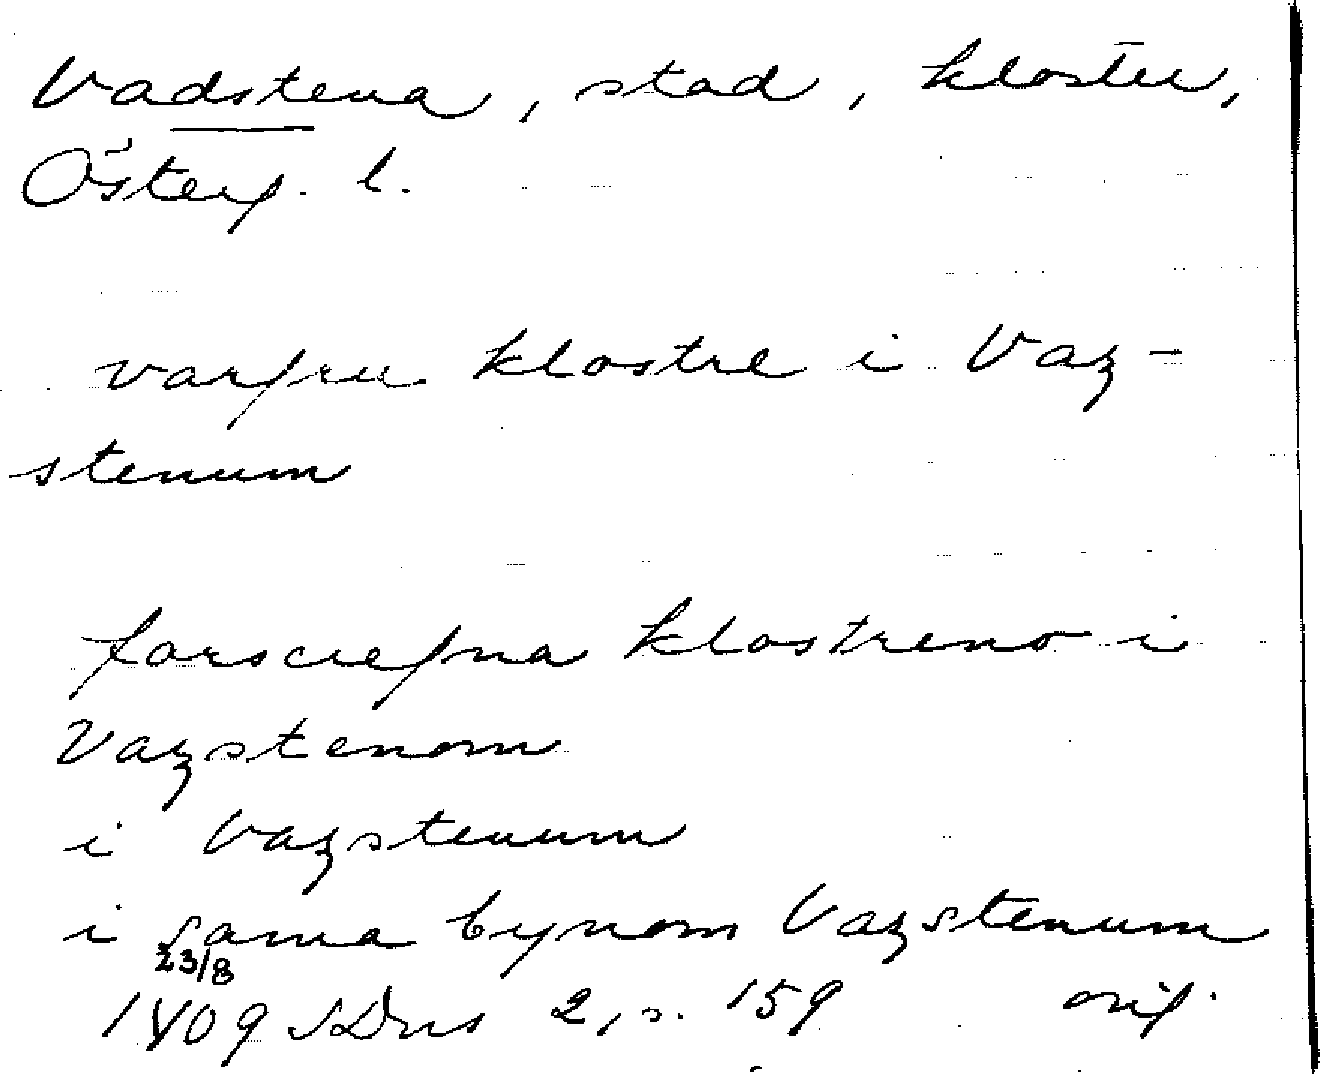 Vadstena, stad, kloster,
Österg. l.
varfru klostre i Vaz-
stenum
forscrefna klostreno i
Vazstenom
i Vazstenum
i sama bynom Vazstenum
23/8
1409 SDns 2, s. 159 orig.